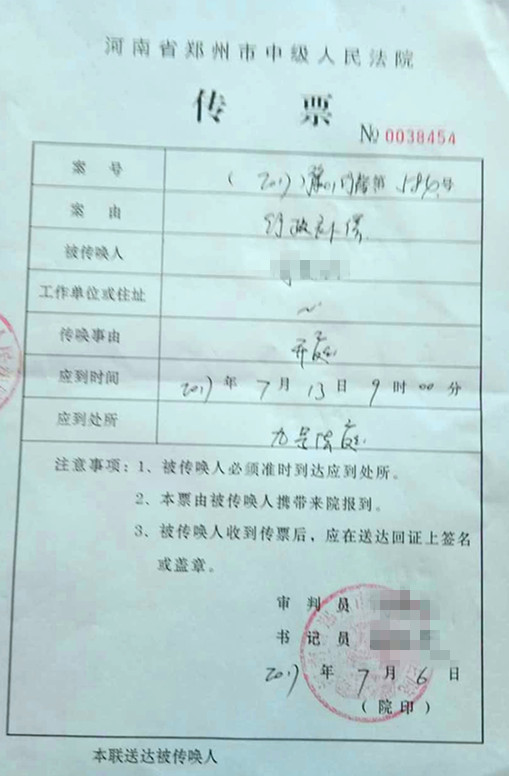 河南省郑州市中级人民法院
传 票
№ 0038454
案 号 (2017) 第 号
案 由 行政补偿
被传唤人
工作单位或住址 ~
传唤事由 开庭
应到时间 2017年7月13日9时00分
应到处所 九号法庭
注意事项：1、被传唤人必须准时到达应到处所。
2、本票由被传唤人携带来院报到。
3、被传唤人收到传票后，应在送达回证上签名
或盖章。
审 判 员
书 记 员
2017年7月6日
（院印）
本联送达被传唤人